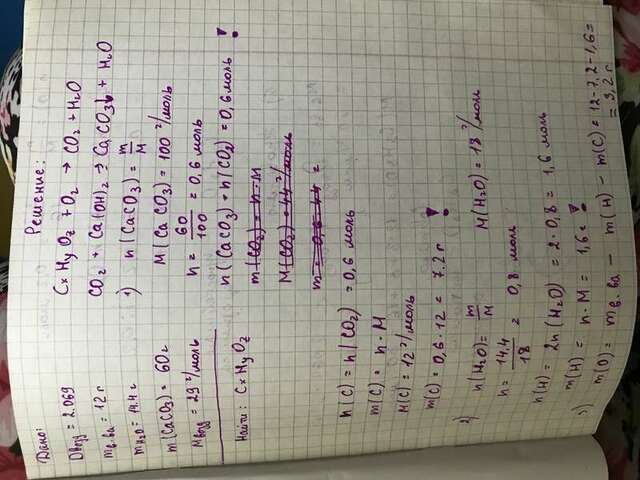 Дано:
Dвозд = 2.069
mв.ва = 12 г
mH2O = 14.4 г
m(CaCO3) = 60г
Mвозд = 29 г/моль
Найти: CxHyOz
Решение:
CxHyOz + O2 → CO2 + H2O
CO2 + Ca(OH)2 → CaCO3↓ + H2O
1) n(CaCO3) = m/M
M(CaCO3) = 100 г/моль
n = 60/100 = 0,6 моль
n(CaCO3) = n(CO2) = 0,6 моль !
m(CO2) = n·M
M(CO2) = 44 г/моль
m = 0,6·44 =
n(C) = n(CO2) = 0,6 моль
m(C) = n·M
M(C) = 12 г/моль
m(C) = 0,6·12 = 7.2 г !
2) n(H2O) = m/M M(H2O) = 18 г/моль
n = 14.4/18 = 0,8 моль
n(H) = 2n(H2O) = 2·0,8 = 1,6 моль
m(H) = n·M = 1,6г !
3) m(O) = mв.ва - m(H) - m(C) = 12-7,2-1,6=
= 3,2 г